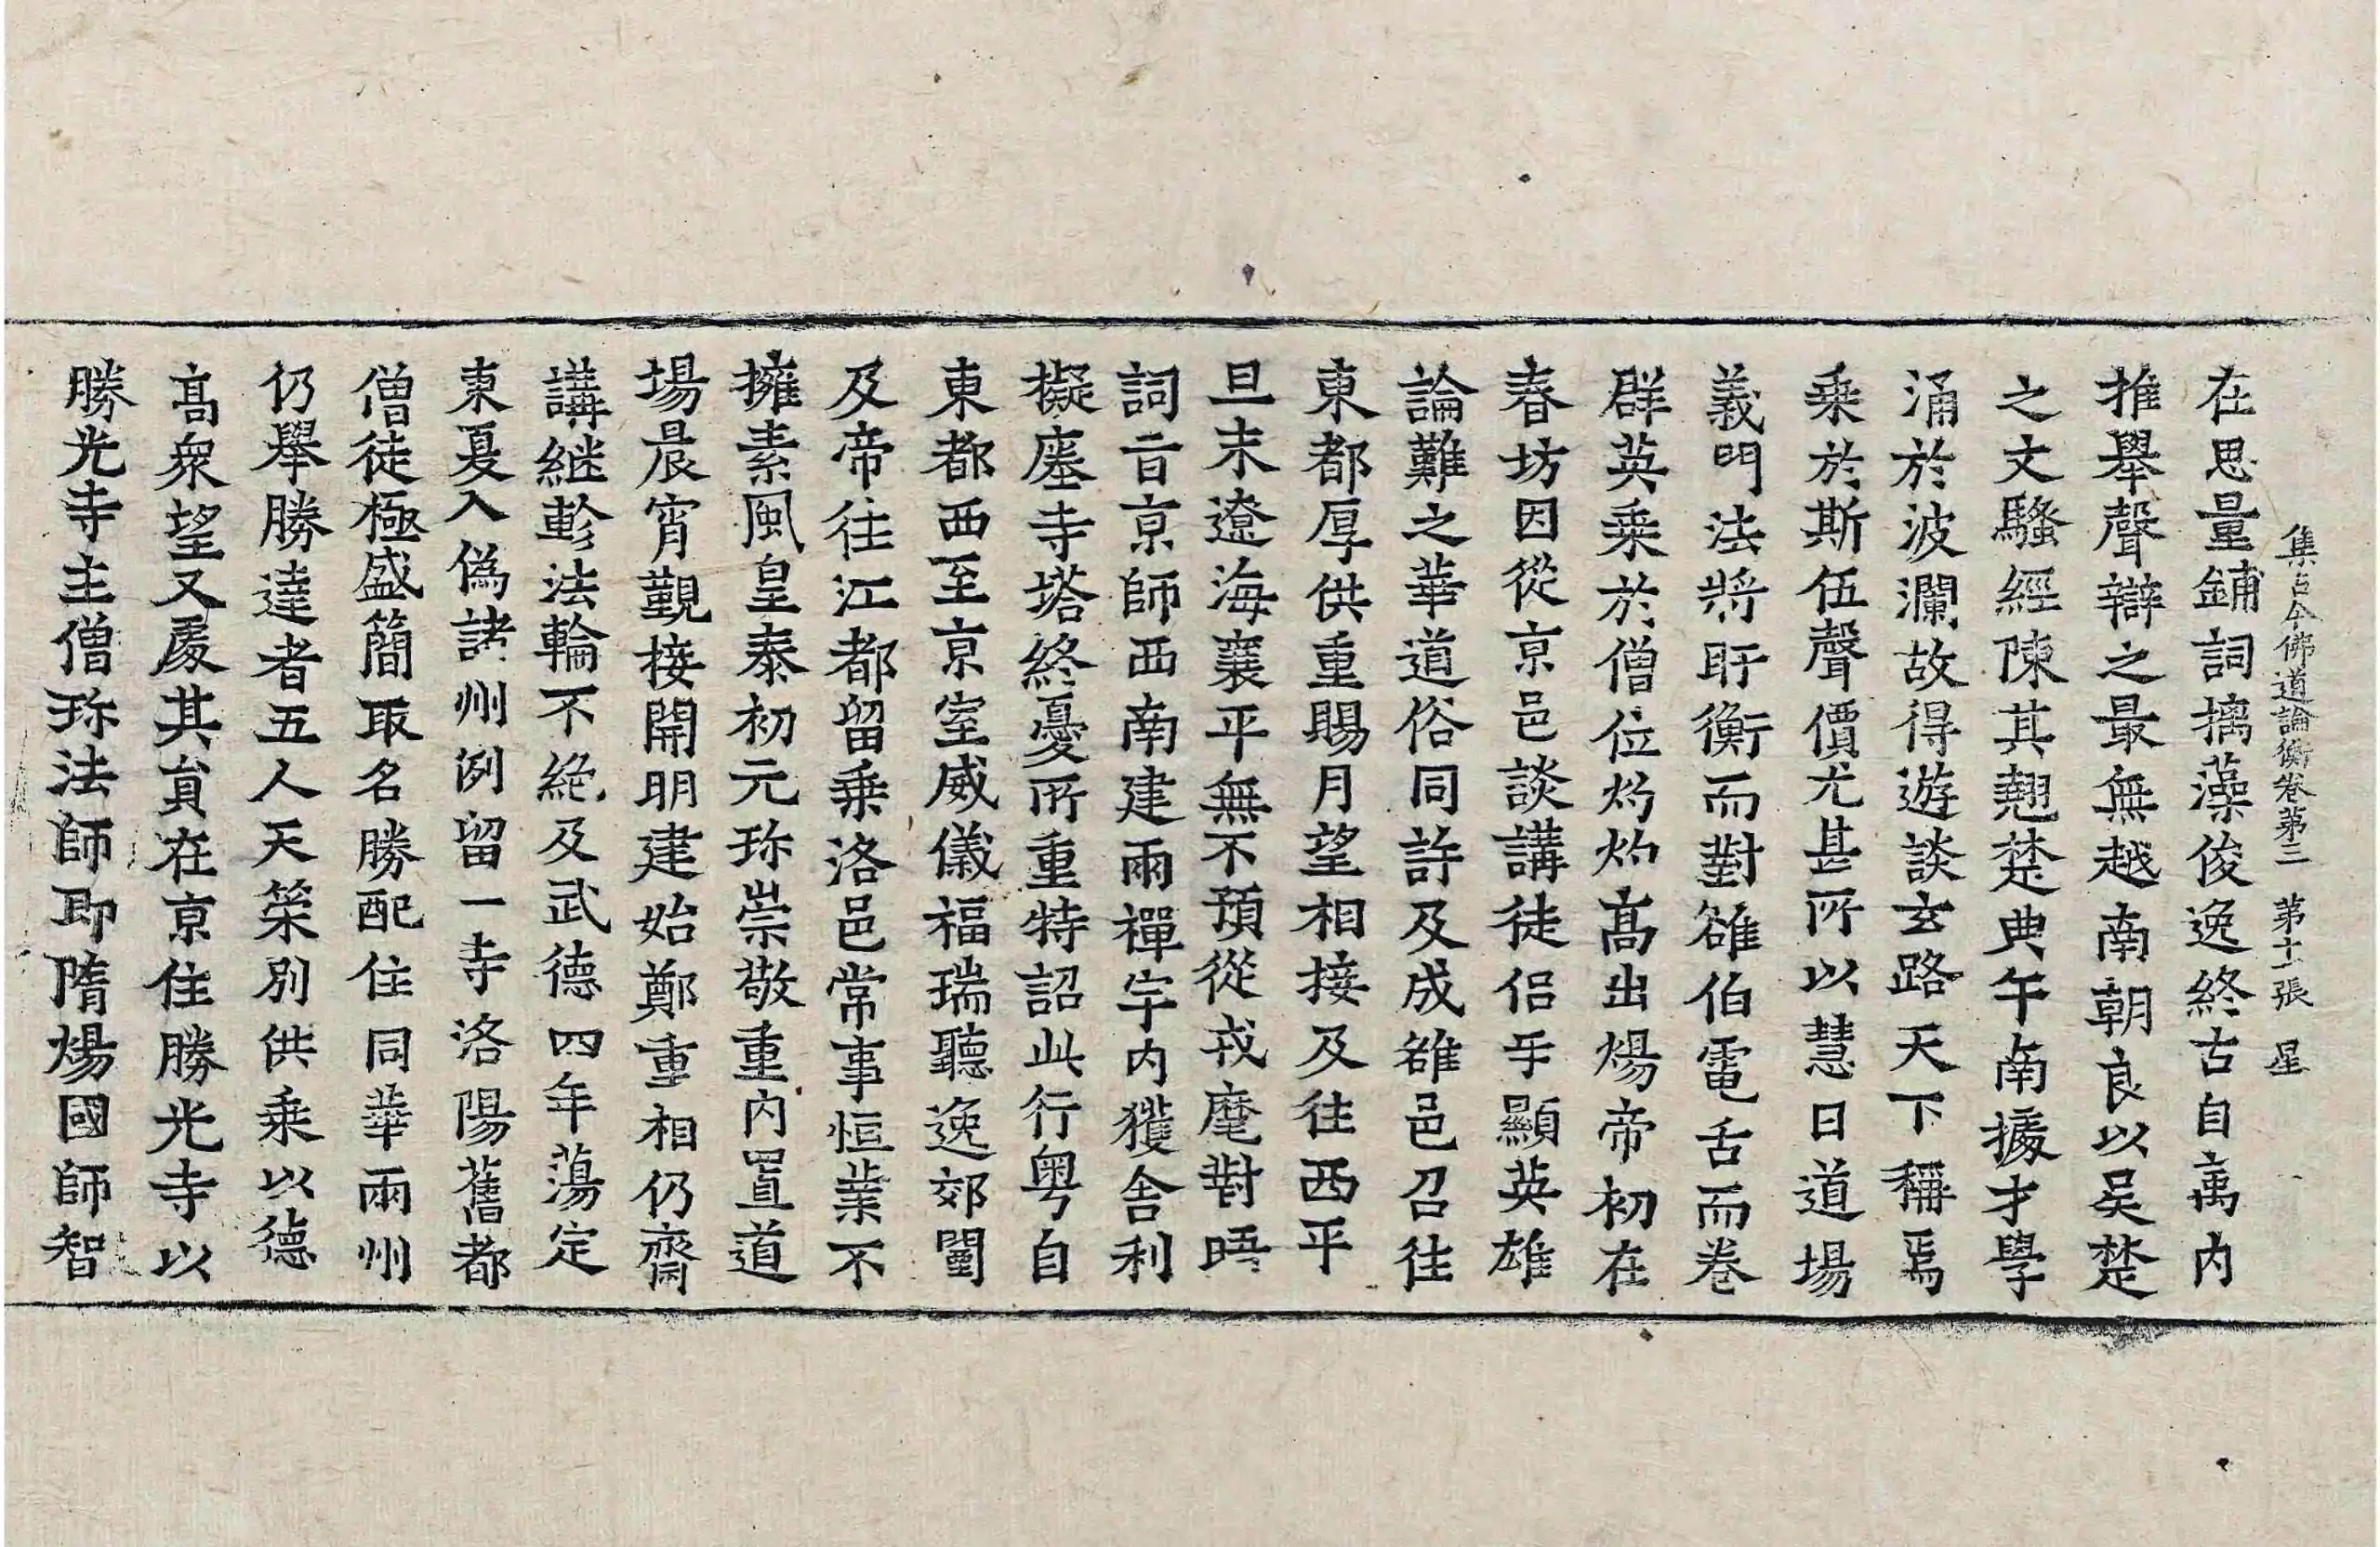 集古今佛道論衡卷第三 第十一張 星
在思量鋪詞摛藻俊逸終古自寓内
推舉聲辯之最無越南朝良以吴楚
之文騷經陳其翹楚典午南據才學
涌於波瀾故得遊談玄路天下稱焉
乗於斯伍聲價尤甚所以慧日道場
義門法將盱衡而對雒伯電舌而卷
群英乗於僧位灼灼髙出煬帝初在
春坊因從京邑談講徒侣乎顯英雄
論難之華道俗同許及成雒邑召往
東都厚供重賜月望相接及往西平
旦末遼海襄平無不預從戎麾對晤
詞旨京師西南建兩禪宇内獲舎利
擬塵寺塔終憂所重特詔此行粤自
東都西至京室威儀福瑞聽逸郊闉
及帝往江都留乗洛邑常事恒業不
擁素風皇泰初元珎崇敬重内置道
場晨宵觀接開明建始鄭重相仍齋
講継軫法輪不絶及武德四年蕩定
東夏入偽諸州例留一寺洛陽舊都
僧徒極盛簡取名勝配住同華兩州
仍舉勝達者五人天䇿別供乗以德
髙衆望又處其員在京住勝光寺以
勝光寺主僧珎法師即隋煬國師智